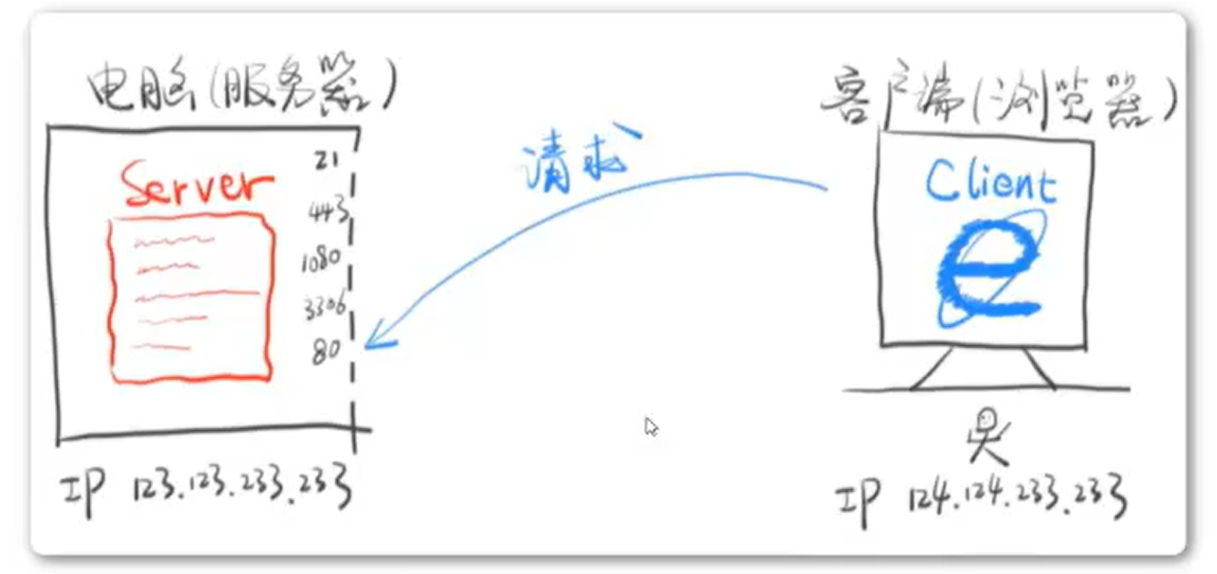 电脑(服务器)
Server
21
443
1080
3306
80
IP 123.123.233.233
请求
客户端(浏览器)
Client
IP 124.124.233.233